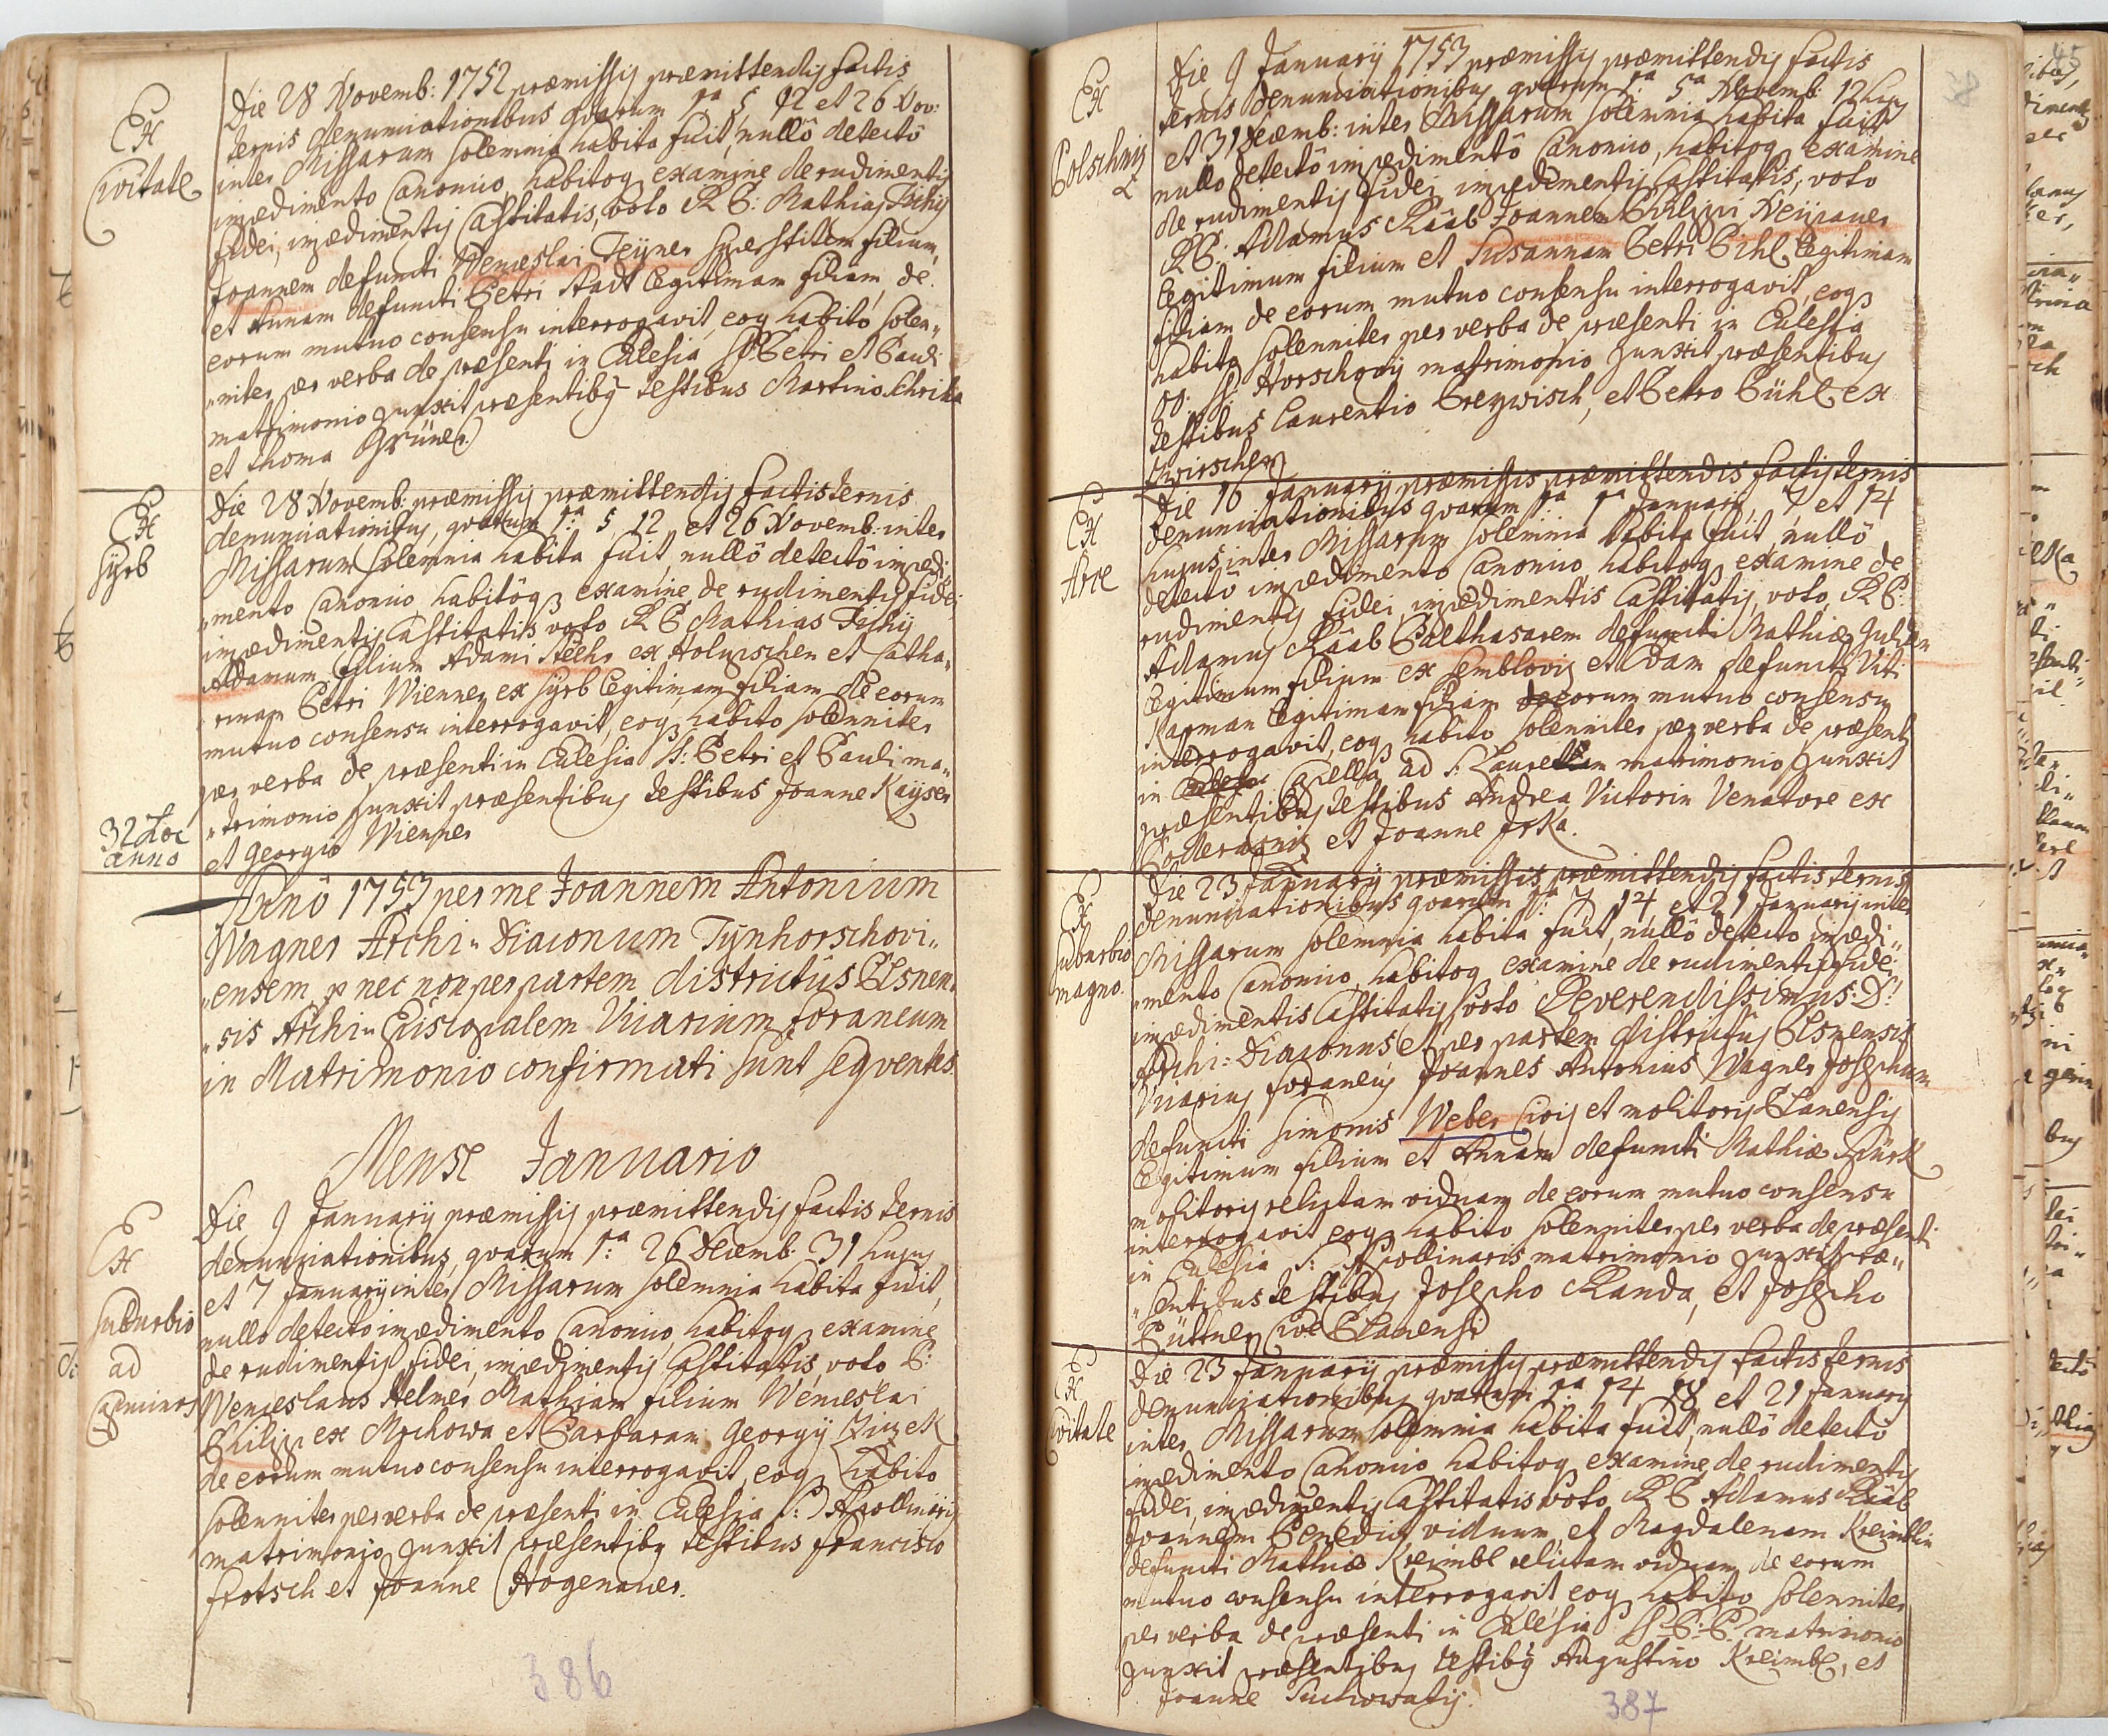 Ex
Civitate
Die 28 Novemb: 1752 præmissis præmittendis factis
ternis denuntiationibus quarum 1.ª 5, 12 et 26 Nov:
inter Missarum solemnia habita fuit, nullô detectô
impedimento Canonico, habitoq examine de rudimentis
fidei, impedimentis Castitatis, voto R P: Mathias Tichy
Joannem defuncti Wenceslai Teyner superstitem filium,
et Annam defuncti Petri Stadt legitimam filiam, de
eorum mutuo consensu interrogavit, eoq habito, solen„
„niter per verba de præsenti in Ecclesia SS Petri et Pauli
matrimonio junxit præsentibq testibus Martino Schrika
et Thoma Grüner.
Ex
Syrb
Die 28 Novemb: præmissis præmittendis factis ternis
denuntiationibus, quarum 1.ª 5, 12, et 26 Novemb: inter
Missarum solemnia habita fuit, nullô detectô impedi
„mento Canonico, habitôq examine de rudimentis fidei
impedimentis Castitatis voto R P Mathias Tichy
Adamum filium Adami ex Holupschen et Catha„
„rinam Petri Wienner ex Syrb legitimam filiam de eorum
mutuo consensu interrogavit, eoq habito solenniter
per verba de præsenti in Ecclesia S: Petri et Pauli ma„
„trimonio junxit præsentibus testibus Joanne Kayser
et Georgio Wienner
32 hoc
anno
Annô 1753 per me Joannem Antonium
Wagner Archi„Diaconum Tynhorschovi„
„ensem, p nec non per partem districtûs Plsnen„
„sis Archi„Episcopalem Vicarium foraneum
in Matrimonio confirmati sunt sequentes
Mense Januario
Ex
Suburbio
ad
Caminos
Die 9 Januarÿ præmissis præmittendis factis ternis
denuntiationibus, quarum 1.ª 26 Decemb: 31 hujus
et 7 Januarÿ inter Missarum solemnia habita fuit,
nullo detecto impedimento Canonico, habitoq examine
de rudimentis fidei, impedimentis Castitatis, voto P:
Wenceslaus Helmer Mathiam filium Wenceslai
Philip ex Mrchowa et Barbaram Georgÿ
de eorum mutuo consensu interrogavit, eoq habito
solenniter per verba de præsenti in Ecclesia S: Apollinaris
matrimonio junxit præsentibq testibus Francisco
Frotsch et Joanne Hogenauer.
386
Ex
Polschniz
Die 9 Januarÿ 1753 præmissis præmittendis factis
ternis denuntiationibus quarum 1.ª 5ª Novemb: 12 hujus
et 31 Decemb: inter Missarum solemnia habita fuit
nullo detectô impedimentô Canonico, habitoq examine
de rudimentis fidei impedimentis Castitatis, voto
R P: Adamus Räab Joannem Philippi Neÿpauer
legitimum filium et Susannam Petri Pihl legitimam
filiam de eorum mutuo consensu interrogavit, eoq
habito solenniter per verba de præsenti in Ecclesia
oo: SS: Horschoviÿ matrimonio junxit præsentibus
testibus Laurentio Preywisch, et Petro Pühl ex
Zwirschen
Ex
Arce
Die 16 Januarÿ præmissis præmittendis factis ternis
denuntiationibus quarum 1.ª 1ª Januarÿ, 7 et 14
hujus, inter Missarum solemnia habita fuit, nullô
detectô impedimento Canonico, habitoq examine de
rudimentis fidei, impedimentis Castitatis, voto, R P:
Adamus Räab Balthasarem defuncti Mathiæ
legitimum filium ex Semblovis et Evam defuncti Viti
Karman legitimam filiam de eorum mutuo consensu
interrogavit, eoq habito solenniter per verba de præsenti
in Capella ad S: Lauretam matrimonio junxit
præsentibus testibus Andrea Victorin Venatore ex
Podermaniz et Joanne Jrka.
Ex
Suburbio
magno.
Die 23 Januarÿ præmissis præmittendis factis ternis
denuntiationibus quarum 1.ª 7, 14, et 21 Januarÿ inter
Missarum solemnia habita fuit, nullô detecto impedi„
„mento Canonico, habitoq examine de rudimentis fidei
impedimentis Castitatis, voto Reverendissimus: D:
Archi=Diaconus et per partem districtus Plsnensis
Vicarius foraneus Joannes Antonius Wagner Josephum
defuncti Simonis Weber Civis et molitoris Planensis
legitimum filium et Annam defuncti Mathiæ Pürk
molitoris relictam viduam de eorum mutuo consensu
interrogavit, eoq habito solenniter per verba de præsenti
in Ecclesia S: Apollinaris matrimonio junxit præ„
„sentibus testibus Josepho Randa, et Josepho
Püttner Cive Planensi
Ex
Civitate
Die 23 Januarÿ præmissis præmittendis factis ternis
denuntiationibus quarum 1.ª 14 18 et 21 Januarÿ
inter Missarum solemnia habita fuit, nullô detectô
impedimento Canonico habitoq examine de rudimentis
fidei, impedimentis Castitatis voto, R P Adamus Räab
Joannem Benedict viduum, et Magdalenam Kreimblin
defuncti Mathiæ Kreimbl relictam viduam de eorum
mutuo consensu interrogavit, eoq habito solenniter
per verba de præsenti in Ecclesia SS: P: P: matrimonio
junxit præsentibus testibq Augustino Kreimbl, et
Joanne Suchowatis.
387